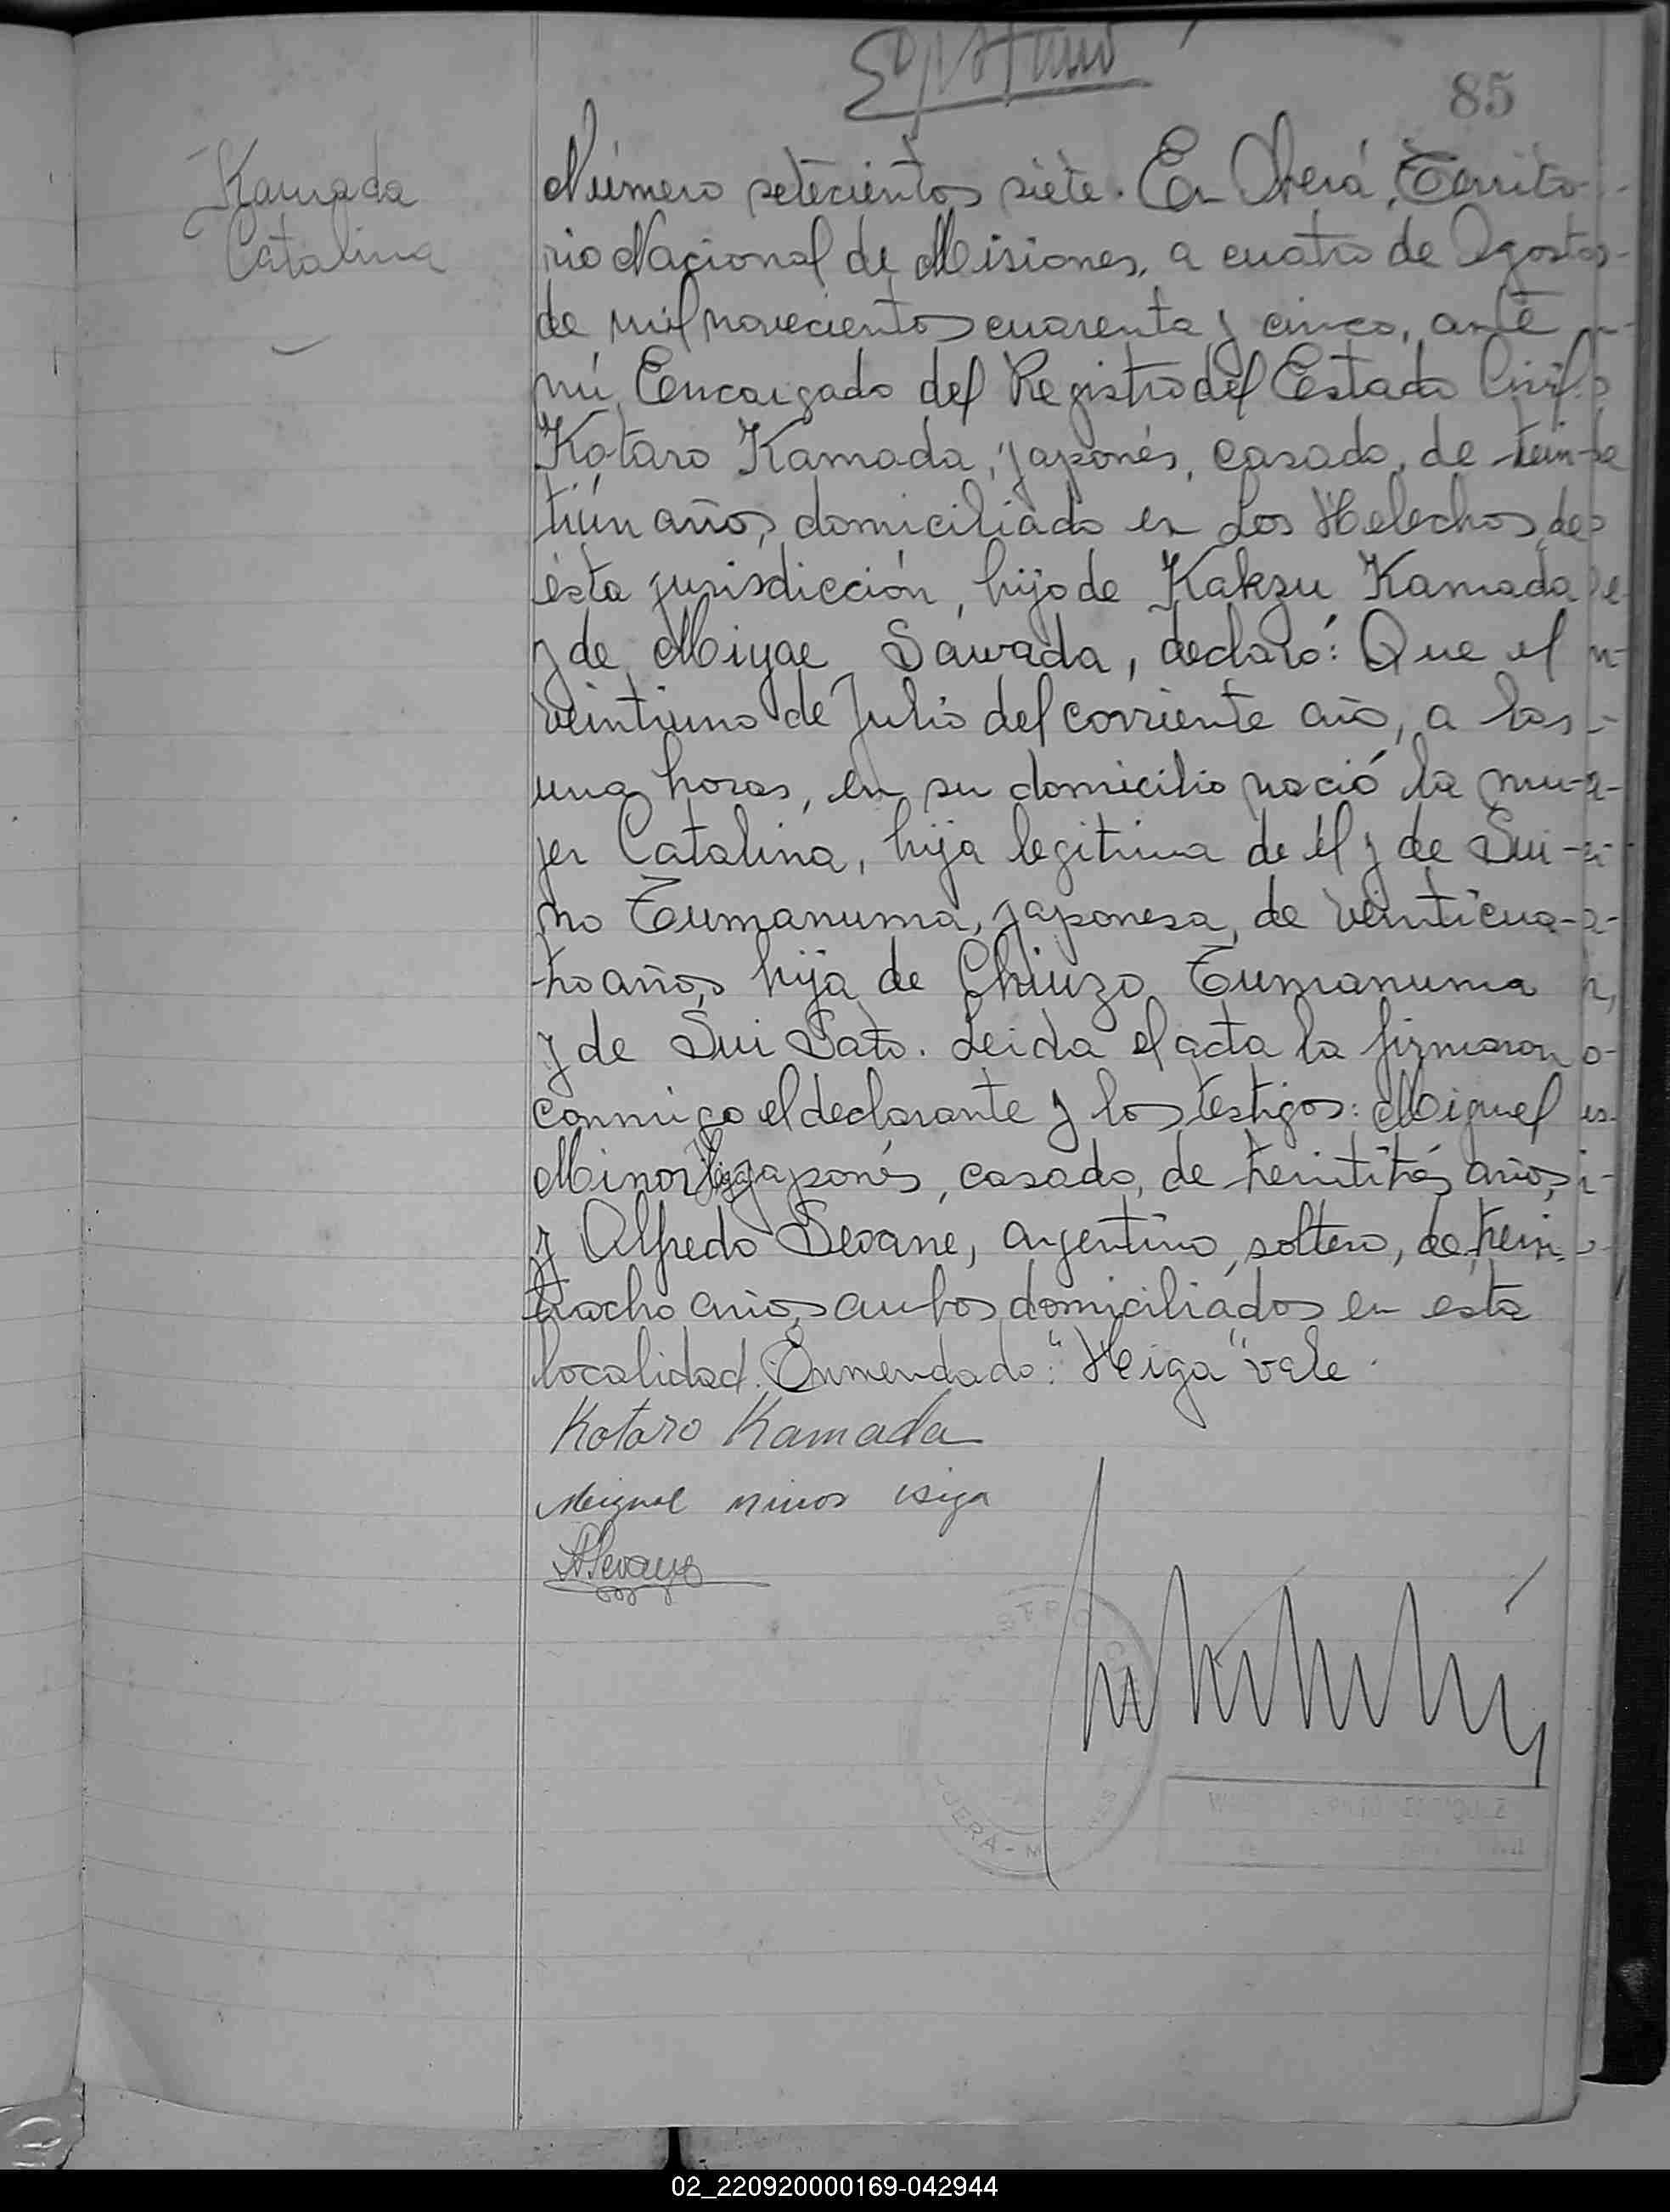 85
Kamada
Catalina
Número setecientos siete. En Oberá, Territo-
rio Nacional de Misiones, a cuatro de Agosto
de mil novecientos cuarenta y cinco, ante
mí, Encargado del Registro del Estado Civil,
Kotaro Kamada, japonés, casado, de trein-
tiún años, domiciliado en Los Helechos, de
ésta jurisdicción, hijo de Kakzu Kamada
y de Miyae Sawada, declaró: Que el
veintiuno de Julio del corriente año, a las
una horas, en su domicilio nació la mu-
jer Catalina, hija legitima de él y de Sui-
no Tumanuma, japonesa, de veinticua-
tro años, hija de Chiuzo Tumanuma
y de Sui Sato. Leida el acta la firmaron
conmigo el declarante y los testigos: Miguel
Minor Higa japonés, casado, de treintitrés años,
y Alfredo Seoane, argentino, soltero, de trein-
tiocho años, ambos domiciliados en esta
localidad. Enmendado: "Higa" vale.
Kotaro Kamada
Miguel minor isiga
ASeoane
OBERÁ - M
02_220920000169-042944